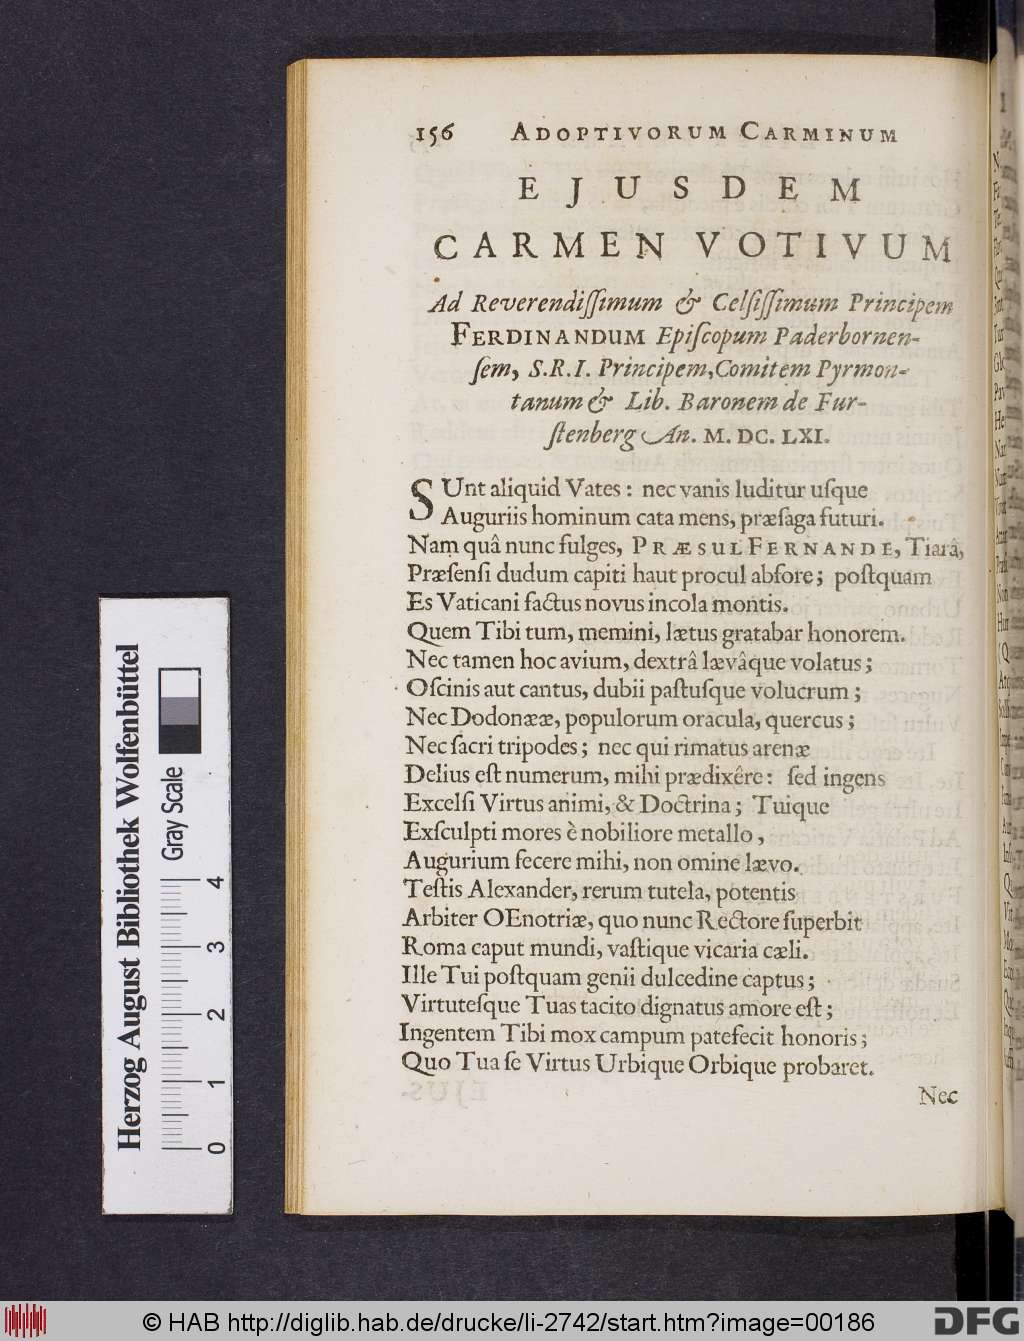 156 ADOPTIVORUM CARMINUM
EJUSDEM
CARMEN VOTIVUM
Ad Reverendiſſimum & Celſiſſimum Principem
FERDINANDUM Epiſcopum Paderbornen-
ſem, S.R.I. Principem, Comitem Pyrmon-
tanum & Lib. Baronem de Fur-
ſtenberg An. M. DC. LXI.
SUnt aliquid Vates: nec vanis luditur uſque
Auguriis hominum cata mens, præſaga futuri.
Nam quâ nunc fulges, PRÆSUL FERNANDE, Tiarâ,
Præſenſi dudum capiti haut procul abfore; poſtquam
Es Vaticani factus novus incola montis.
Quem Tibi tum, memini, lætus gratabar honorem.
Nec tamen hoc avium, dextrâ lævâque volatus;
Oſcinis aut cantus, dubii paſtuſque volucrum;
Nec Dodonææ, populorum oracula, quercus;
Nec ſacri tripodes; nec qui rimatus arenæ
Delius eſt numerum, mihi prædixêre: ſed ingens
Excelſi Virtus animi, & Doctrina; Tuique
Exſculpti mores è nobiliore metallo,
Augurium fecere mihi, non omine lævo.
Teſtis Alexander, rerum tutela, potentis
Arbiter OEnotriæ, quo nunc Rectore ſuperbit
Roma caput mundi, vaſtique vicaria cæli.
Ille Tui poſtquam genii dulcedine captus;
Virtuteſque Tuas tacito dignatus amore eſt;
Ingentem Tibi mox campum patefecit honoris;
Quo Tua ſe Virtus Urbique Orbique probaret.
Nec
Herzog August Bibliothek Wolfenbüttel
Gray Scale
0 1 2 3 4
© HAB http://diglib.hab.de/drucke/li-2742/start.htm?image=00186
DFG